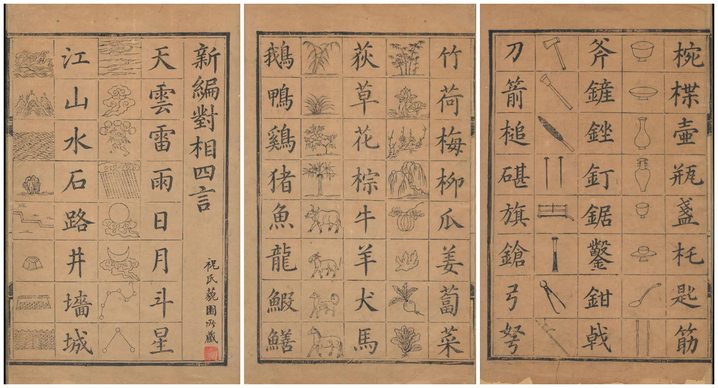 新編對相四言
祝氏園所藏
天雲雷雨日月斗星
江山水石路井墻城
竹荷梅柳瓜姜蔔菜
荻草花棕牛羊犬馬
鵝鴨鷄猪魚龍鰕鱔
椀楪壺瓶盞杔匙筋
斧鏟銼釘鋸鑿鉗戟
刀箭槌碪旗鎗弓弩